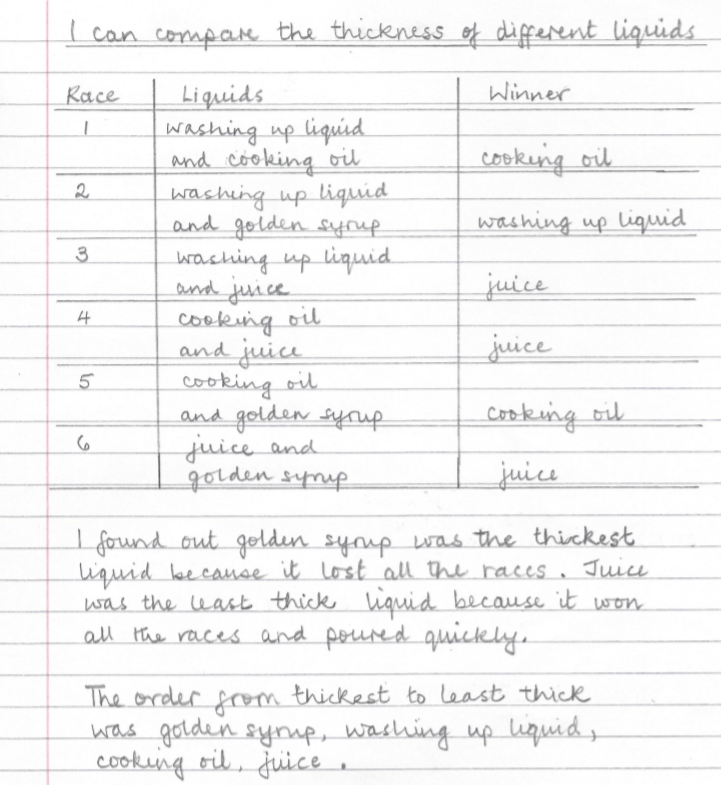 I can compare the thickness of different liquids
Race Liquids Winner
1 washing up liquid
and cooking oil cooking oil
2 washing up liquid
and golden syrup washing up liquid
3 washing up liquid
and juice juice
4 cooking oil
and juice juice
5 cooking oil
and golden syrup cooking oil
6 juice and
golden syrup juice
I found out golden syrup was the thickest
liquid because it lost all the races. Juice
was the least thick liquid because it won
all the races and poured quickly.
The order from thickest to least thick
was golden syrup, washing up liquid,
cooking oil, juice.